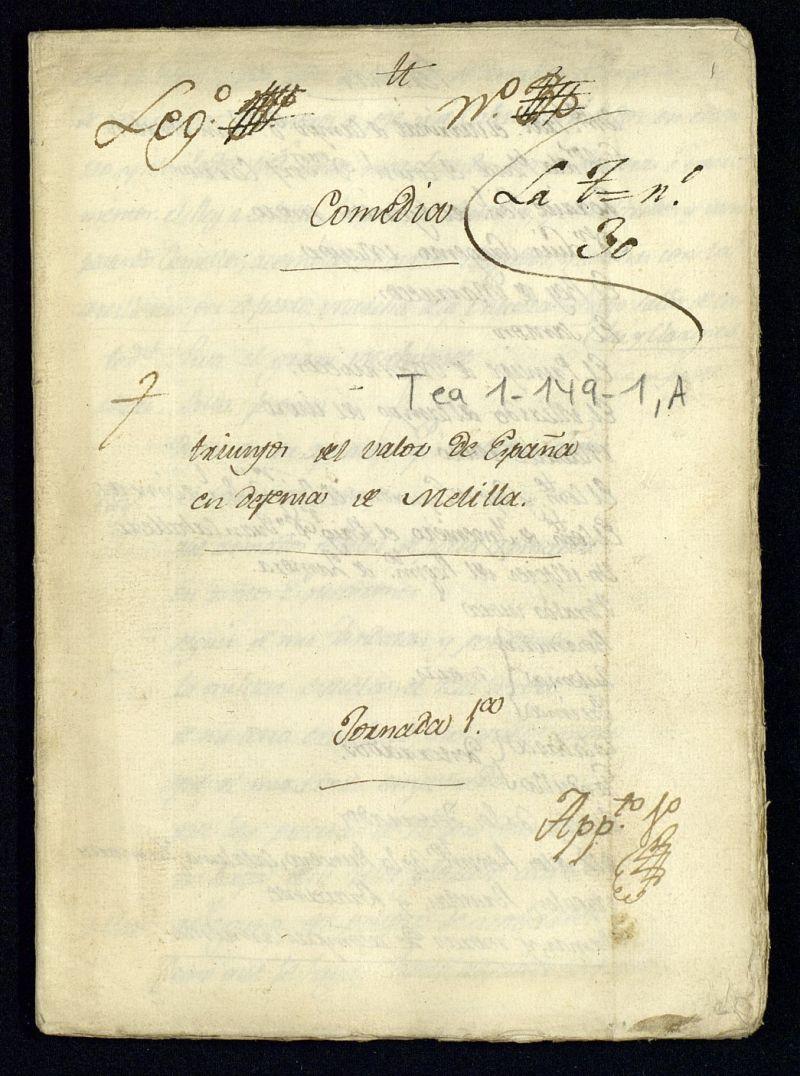 tt
Leg.º Nº
Comedia
La T= n.º
30
Tea 1-149-1, A
triunfos del valor de España
en defensa de Melilla.
Jornada 1.ª
App.to 1º